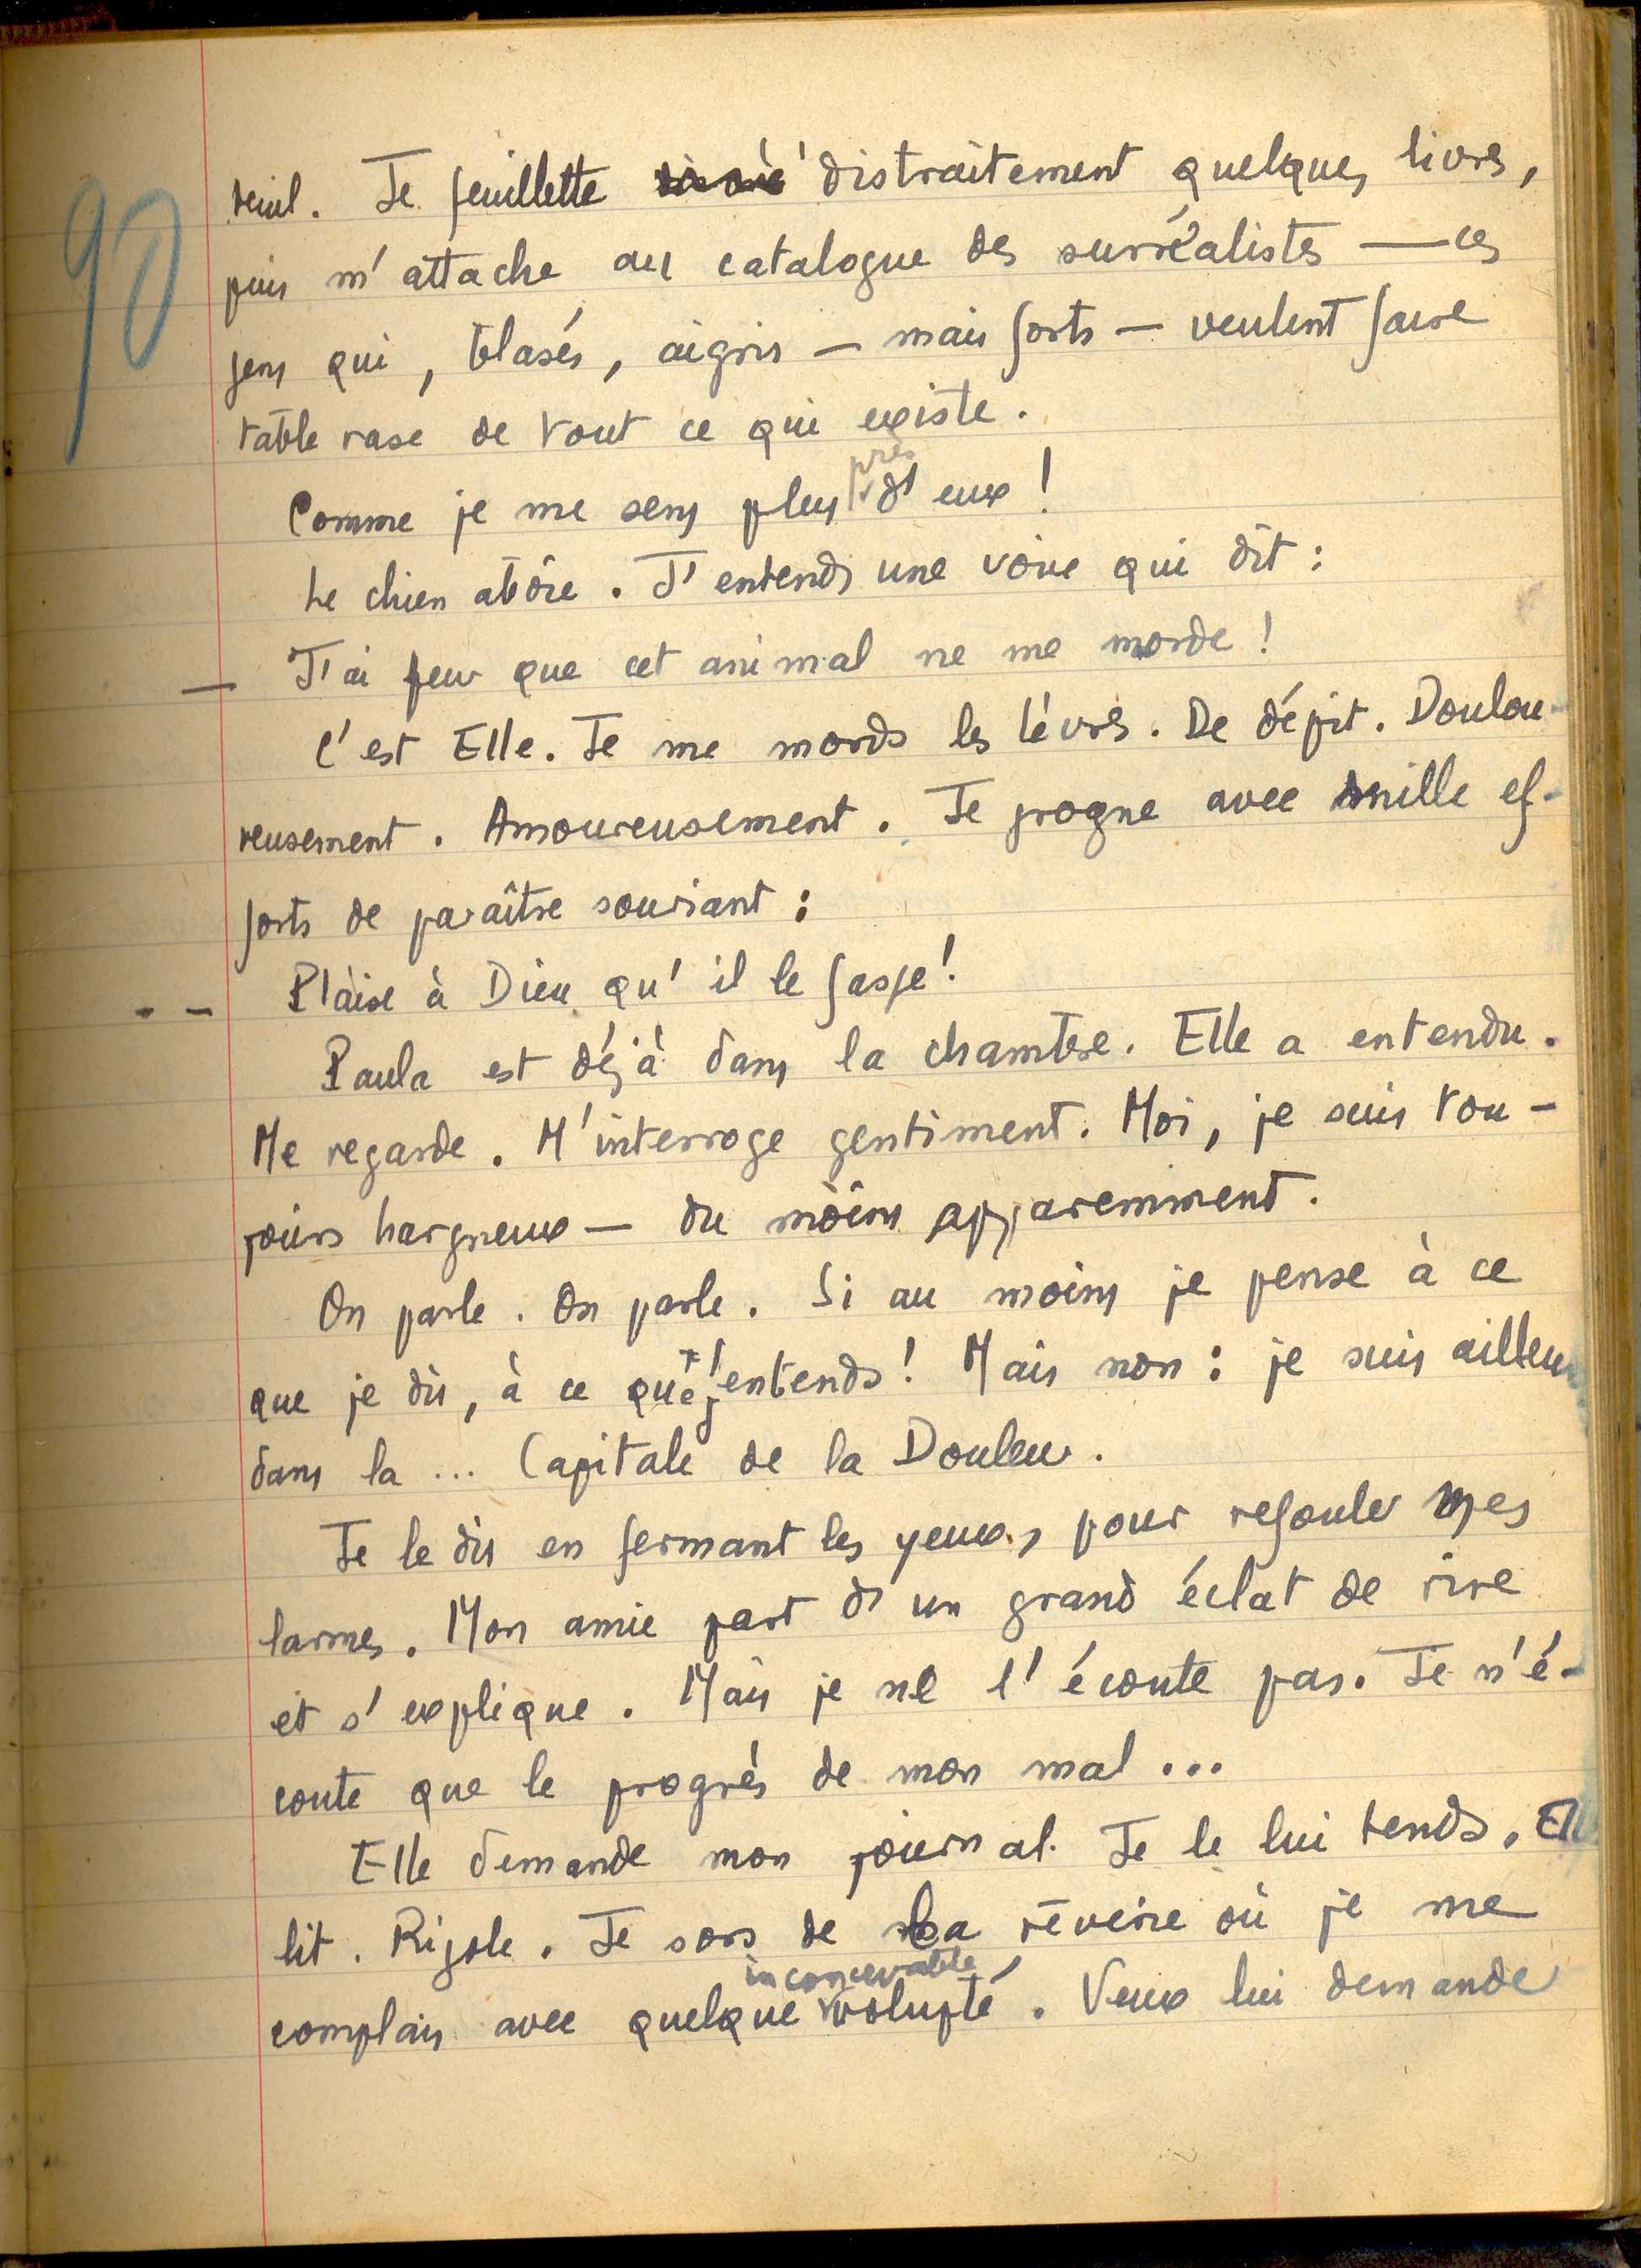 90
teuil. Je feuillette distraitement quelques livres,
puis m'attache au catalogue des surréalistes — ces
gens qui, blasés, aigris — mais forts — veulent faire
table rase de tout ce qui existe.
Comme je me sens plus près d'eux !
Le chien aboie. J'entends une voix qui dit :
— J'ai peur que cet animal ne me morde !
C'est Elle. Je me mords les lèvres. De dépit. Doulou-
reusement. Amoureusement. Je grogne avec mille ef-
forts de paraître souriant :
-- Plaise à Dieu qu'il le fasse !
Paula est déjà dans la chambre. Elle a entendu.
Me regarde. M'interroge gentiment. Moi, je suis tou-
jours hargneux — du moins apparemment.
On parle. On parle. Si au moins je pense à ce
que je dis, à ce que j'entends ! Mais non : je suis ailleurs
dans la ... Capitale de la Douleur.
Je le dis en fermant les yeux, pour refouler mes
larmes. Mon amie part d'un grand éclat de rire
et s'explique. Mais je ne l'écoute pas. Je n'é-
coute que le progrès de mon mal ...
Elle demande mon journal. Je le lui tends. Elle
lit. Rigole. Je sors de la rêverie où je me
complais avec quelque inconcevable volupté. Veux lui demander